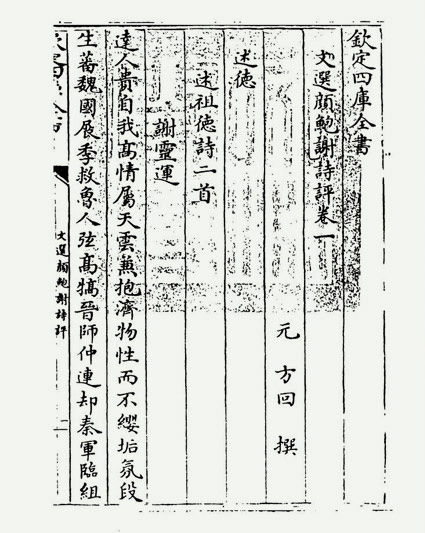 欽定四庫全書
文選顔鮑謝詩評卷一
元 方回 撰
述徳
述祖徳詩二首
謝靈運
達人貴自我髙情屬天雲兼抱濟物性而不纓垢氛段
生蕃魏國展季救魯人弦髙犒晉師仲連却秦軍臨組
文選顔鮑謝詩評
一